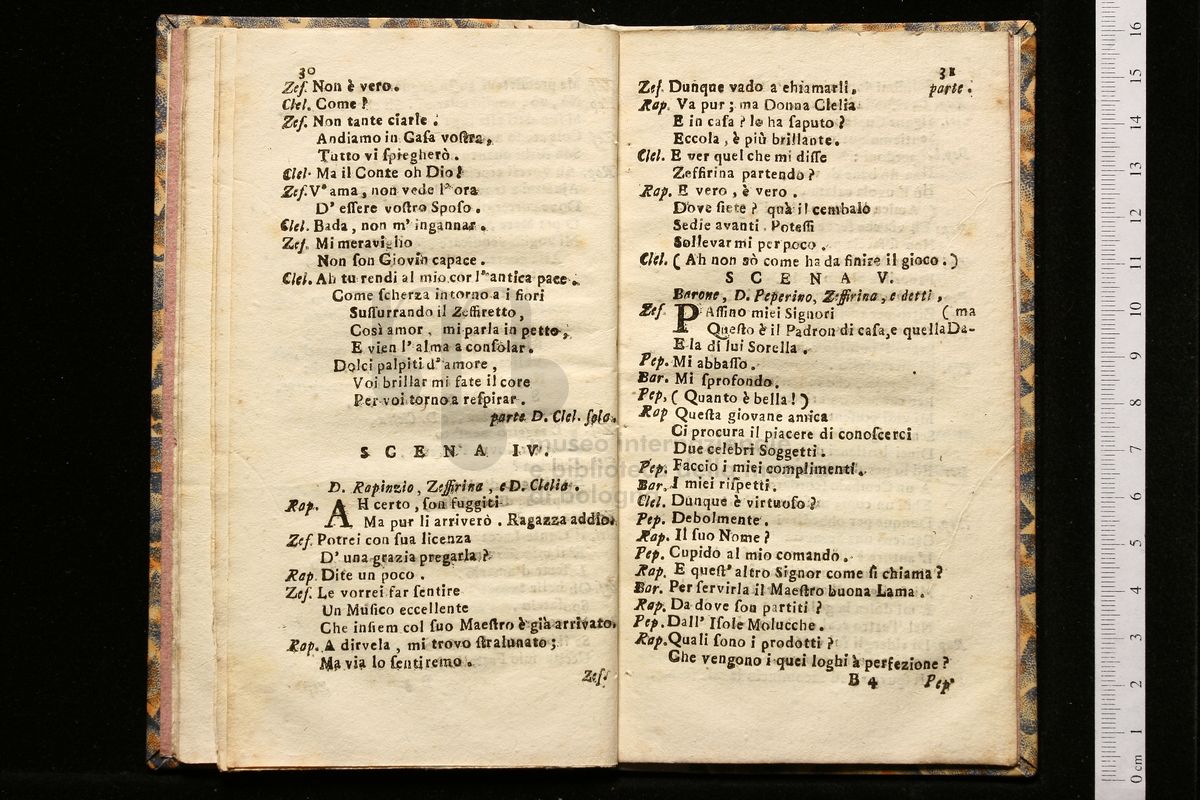 30
Zeſ. Non è vero.
Clel. Come?
Zeſ. Non tante ciarle.
Andiamo in Caſa voſtra,
Tutto vi ſpiegherò.
Clel. Ma il Conte oh Dio!
Zeſ. V' ama, non vede l' ora
D' eſſere voſtro Spoſo.
Clel. Bada, non m' ingannar.
Zeſ. Mi meraviglio
Non ſon Giovin capace.
Clel. Ah tu rendi al mio cor l' antica pace.
Come ſcherza intorno a i fiori
Suſſurrando il Zeffiretto,
Così amor, mi parla in petto,
E vien l' alma a conſolar.
Dolci palpiti d' amore,
Voi brillar mi fate il core
Per voi torno a reſpirar.
parte D. Clel. ſola.
SCENA IV.
D. Rapinzio, Zeffirina, e D. Clelia.
Rap. AH certo, ſon fuggiti
Ma pur li arriverò. Ragazza addio.
Zeſ. Potrei con ſua licenza
D' una grazia pregarla?
Rap. Dite un poco.
Zeſ. Le vorrei far ſentire
Un Muſico eccellente
Che inſiem col ſuo Maeſtro è già arrivato.
Rap. A dirvela, mi trovo ſtralunato;
Ma via lo ſentiremo.
Zeſ.
31
Zeſ. Dunque vado a chiamarli. parte.
Rap. Va pur; ma Donna Clelia
E in caſa? lo ha ſaputo?
Eccola, è più brillante.
Clel. E ver quel che mi diſſe
Zeffirina partendo?
Rap. E vero, è vero.
Dove ſiete? quà il cembalo
Sedie avanti. Poteſſi
Sollevarmi per poco.
Clel. (Ah non sò come ha da finire il gioco.)
SCENA V.
Barone, D. Peperino, Zeffirina, e detti,
Zeſ. PAſſino miei Signori (ma
Queſto è il Padron di caſa, e quella Da-
E la di lui Sorella.
Pep. Mi abbaſſo.
Bar. Mi ſprofondo.
Pep, (Quanto è bella!)
Rap Queſta giovane amica
Ci procura il piacere di conoſcerci
Due celebri Soggetti.
Pep. Faccio i miei complimenti.
Bar. I miei riſpetti.
Clel. Dunque è virtuoſo?
Pep. Debolmente.
Rap. Il ſuo Nome?
Pep. Cupido al mio comando.
Rap. E queſt' altro Signor come ſi chiama?
Bar. Per ſervirla il Maeſtro buona Lama.
Rap. Da dove ſon partiti?
Pep. Dall' Iſole Molucche.
Rap. Quali ſono i prodotti?
Che vengono i quei loghi à perfezione?
B 4 Pep